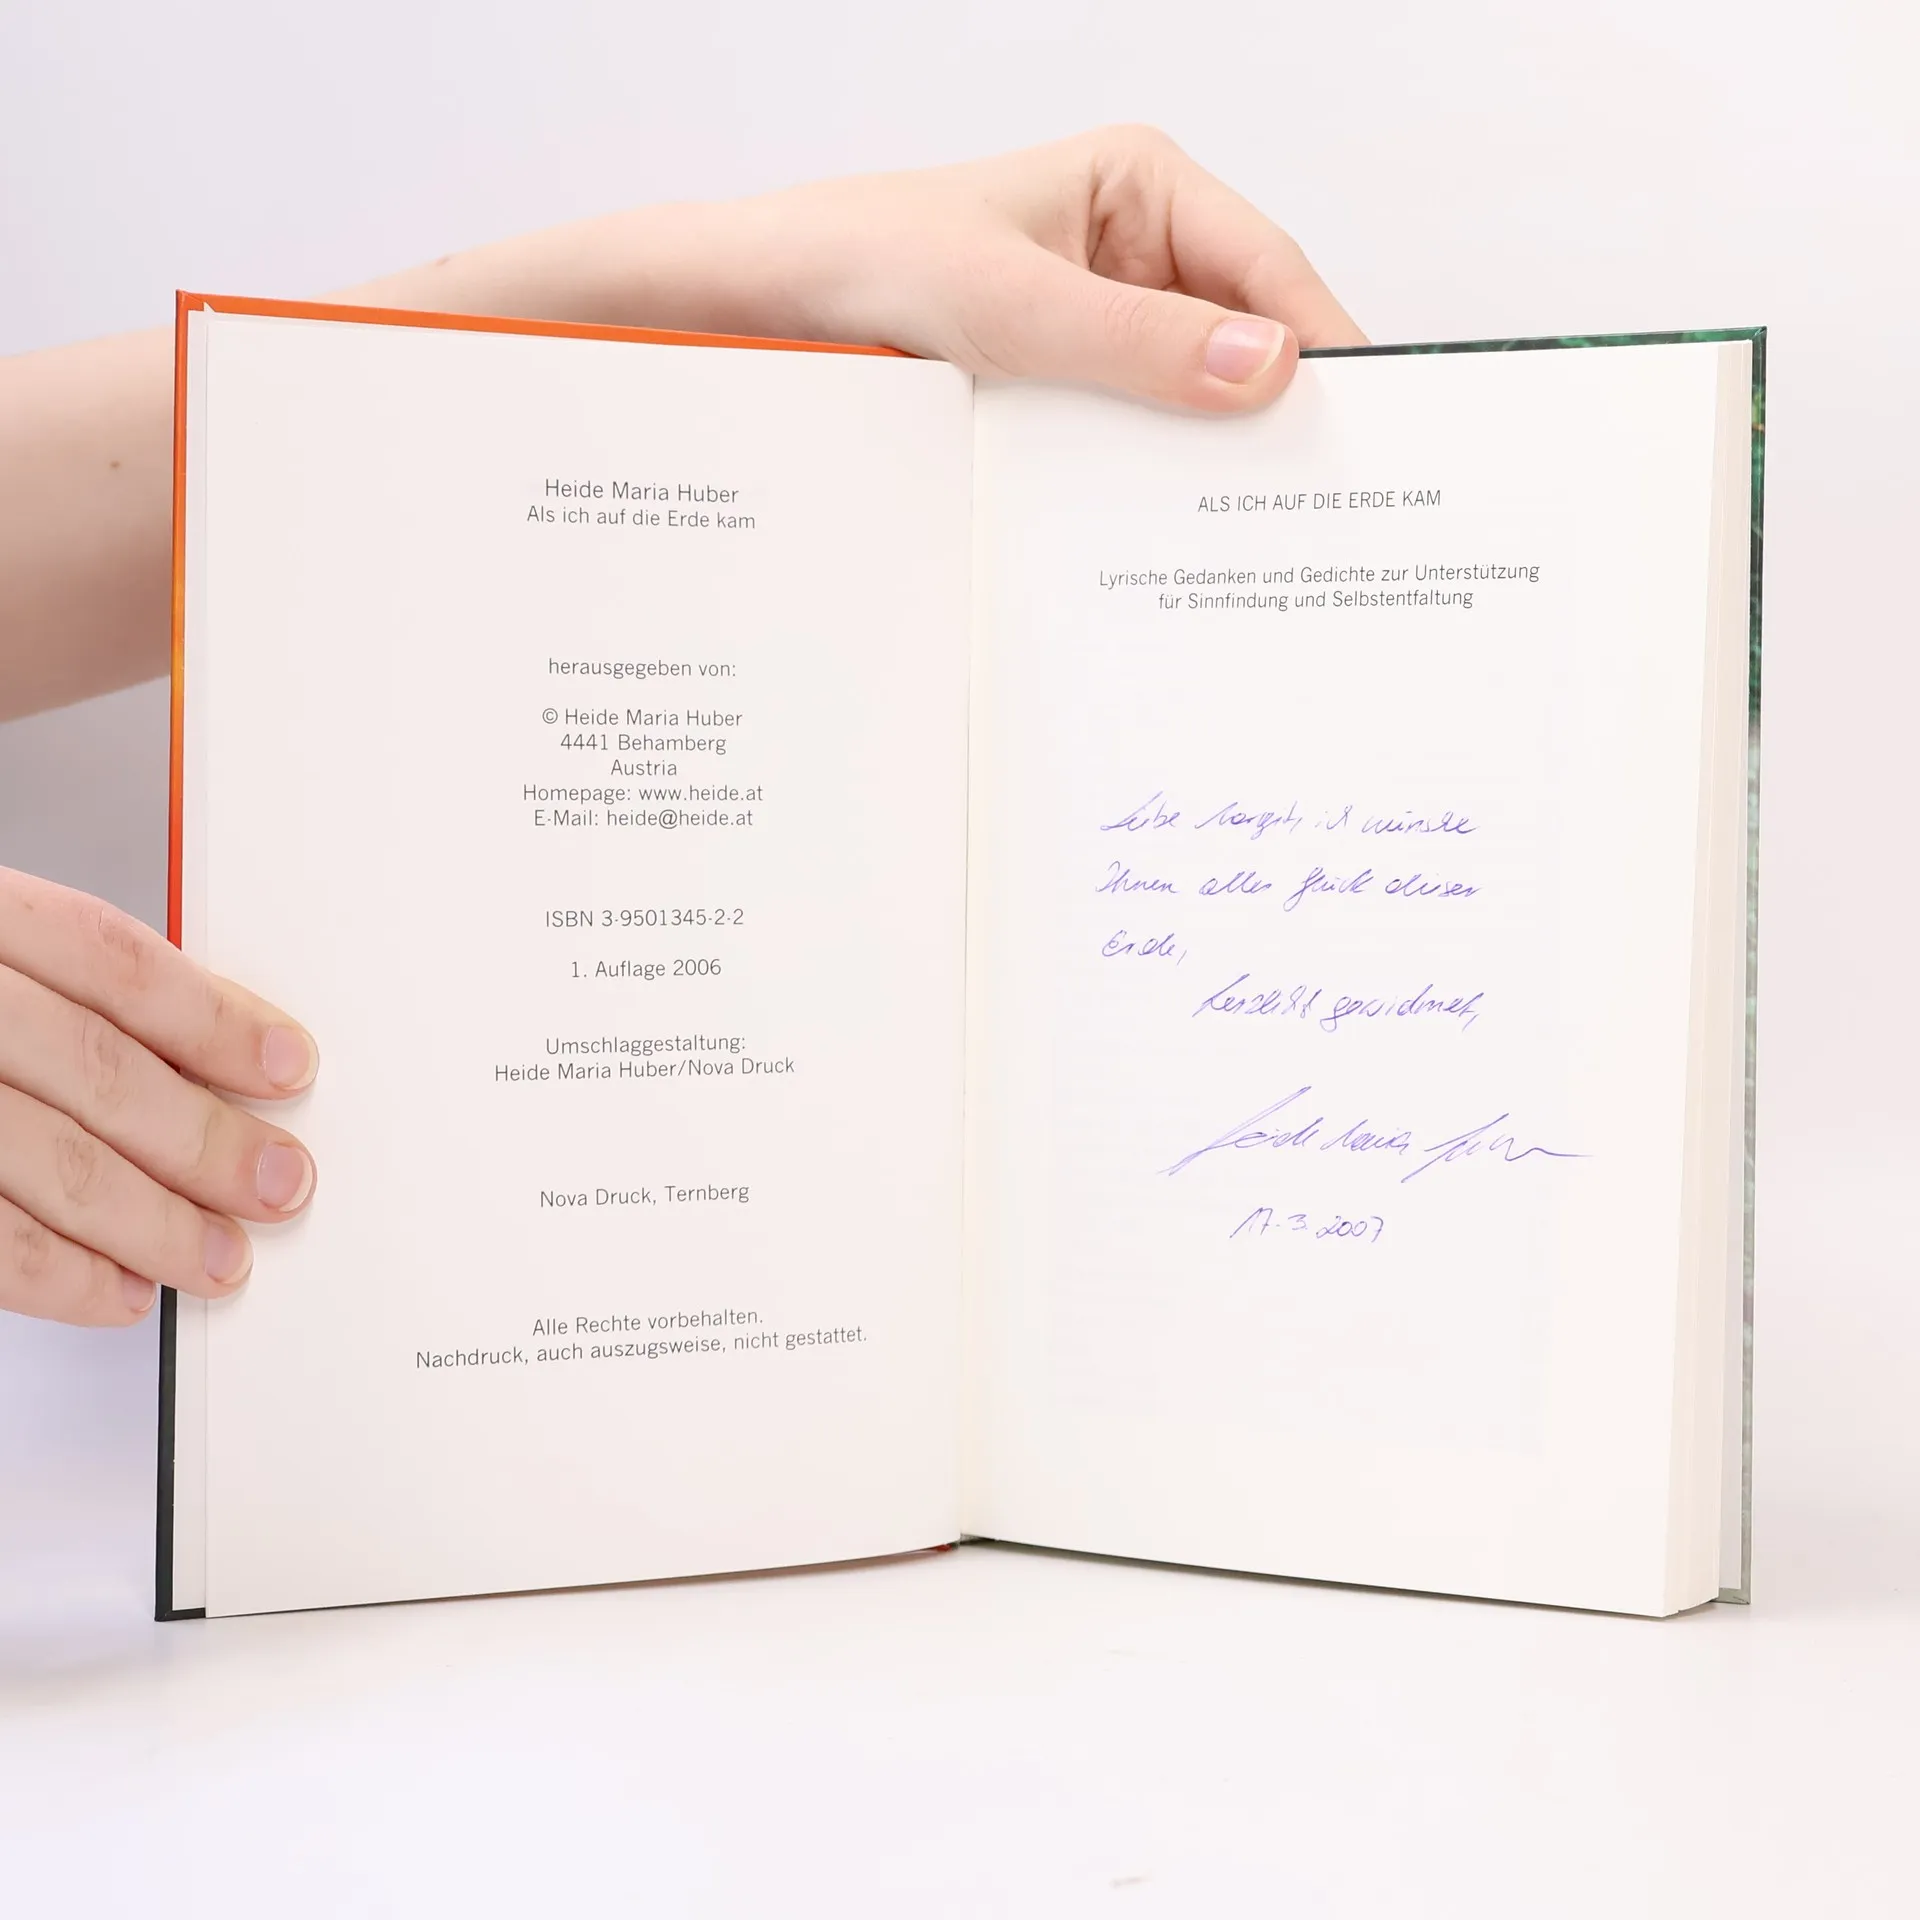 Heide Maria Huber
Als ich auf die Erde kam
herausgegeben von:
© Heide Maria Huber
4441 Behamberg
Austria
Homepage: www.heide.at
E-Mail: heide@heide.at
ISBN 3-9501345-2-2
1. Auflage 2006
Umschlaggestaltung:
Heide Maria Huber/Nova Druck
Nova Druck, Ternberg
Alle Rechte vorbehalten.
Nachdruck, auch auszugsweise, nicht gestattet.
ALS ICH AUF DIE ERDE KAM
Lyrische Gedanken und Gedichte zur Unterstützung
für Sinnfindung und Selbstentfaltung
Liebe Margit, ich wünsche
Ihnen alles Glück dieser
Erde,
herzlichst gewidmet,
Heide Maria Huber
17.3.2007